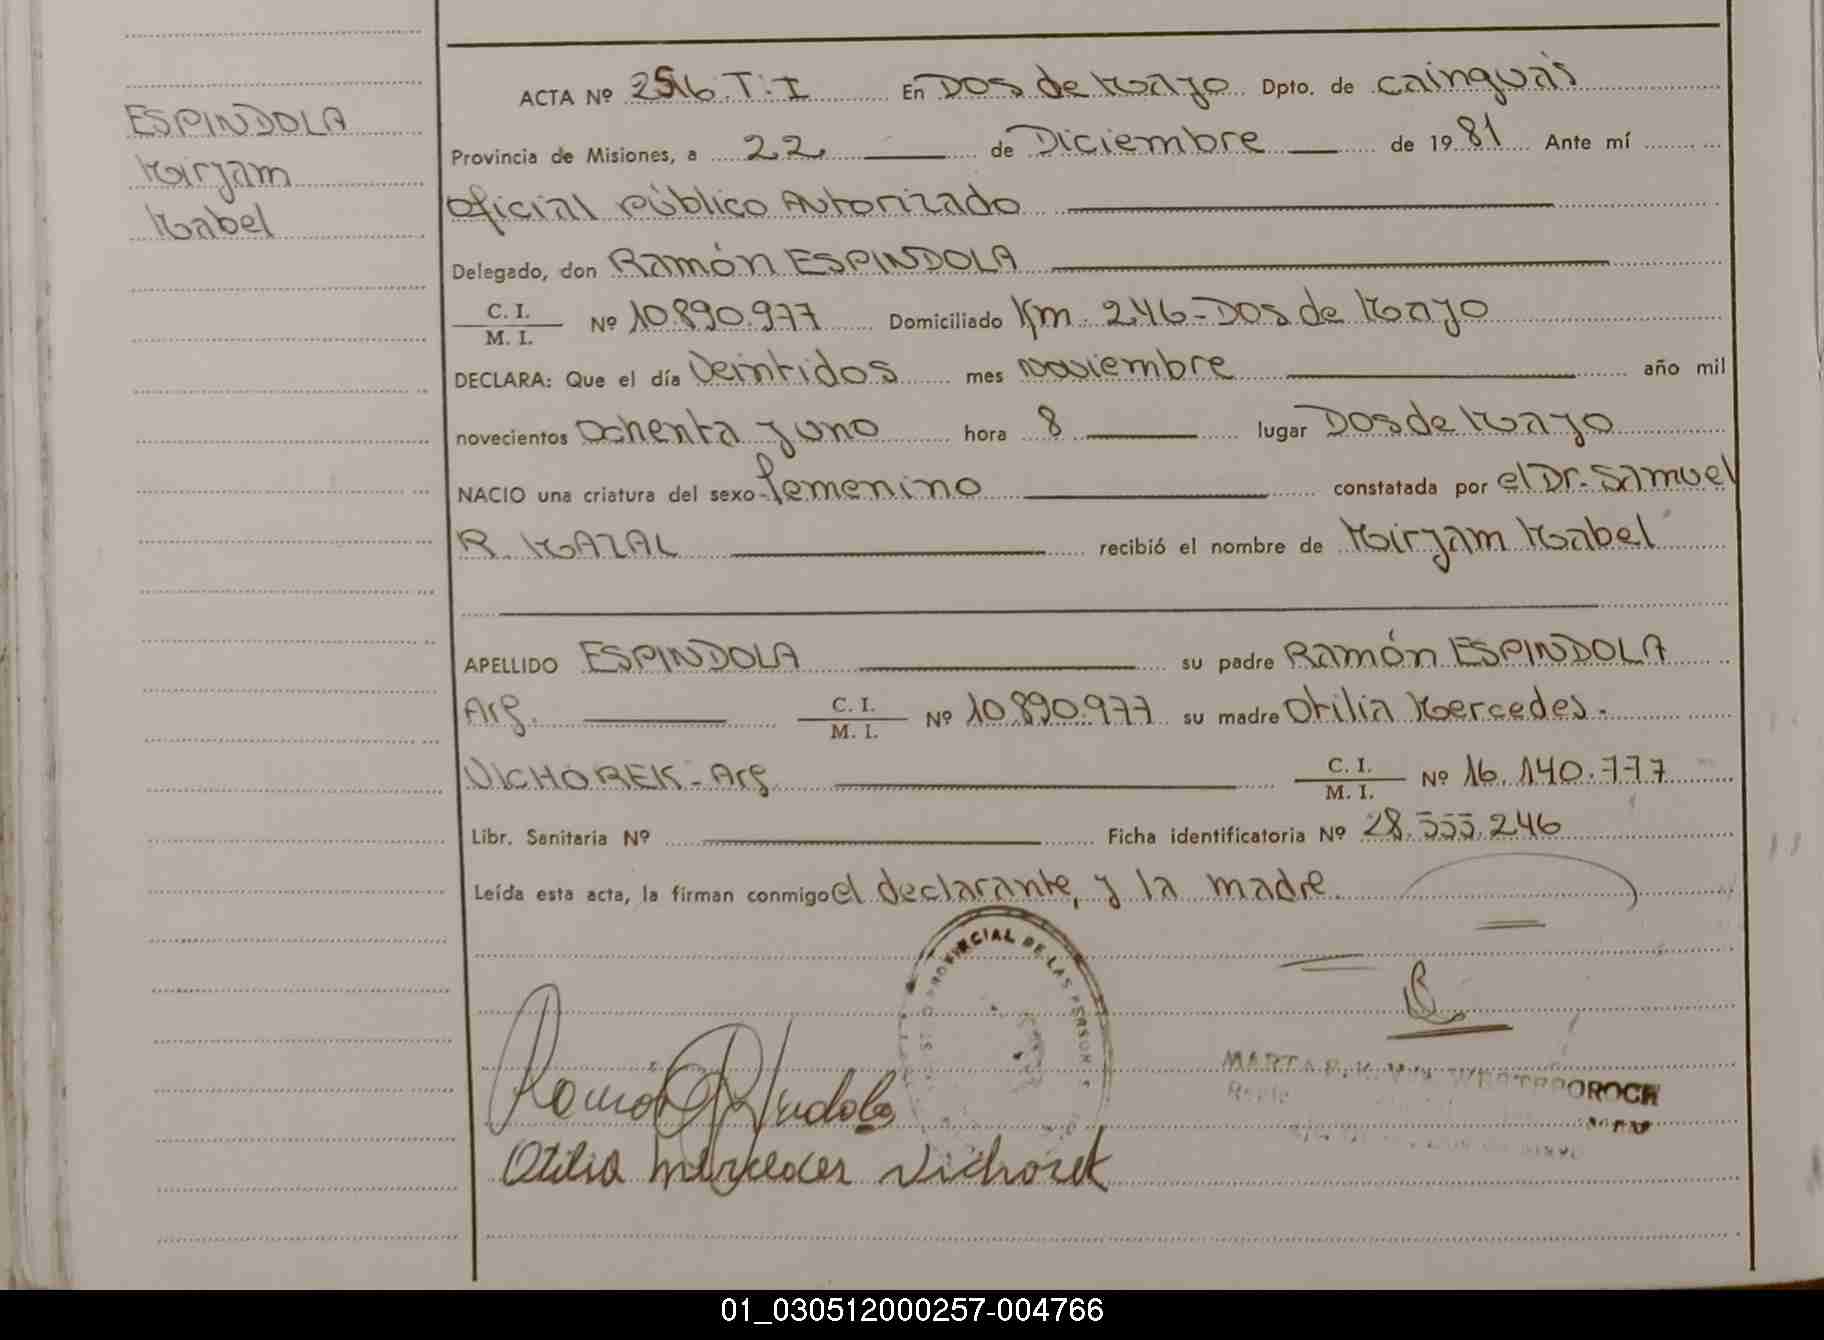 ESPINDOLA
Miryam
Mabel
ACTA Nº 2516. T: I En Dos de Mayo Dpto. de cainguás
Provincia de Misiones, a 22 de Diciembre de 1981 Ante mí
oficial público Autorizado
Delegado, don Ramón ESPINDOLA
C. I.
M. I. Nº 10.890.977 Domiciliado Km. 246-Dos de Mayo
DECLARA: Que el día Veintidos mes noviembre año mil
novecientos ochenta y uno hora 8 lugar Dos de Mayo
NACIO una criatura del sexo femenino constatada por el Dr. Samuel
R. MAZAL recibió el nombre de Miryam Mabel
APELLIDO ESPINDOLA su padre Ramón ESPINDOLA
Arg. C. I.
M. I. Nº 10.890.977 su madre Otilia Mercedes.
VICHOREK- Arg C. I.
M. I. Nº 16.140.777
Libr. Sanitaria Nº Ficha identificatoria Nº 28.555.246
Leída esta acta, la firman conmigo el declarante, y la madre.
PROVINCIAL DE LAS PERSON
Ramón Espindola
Otilia Mercedes Vichorek
MARTA
01_030512000257-004766